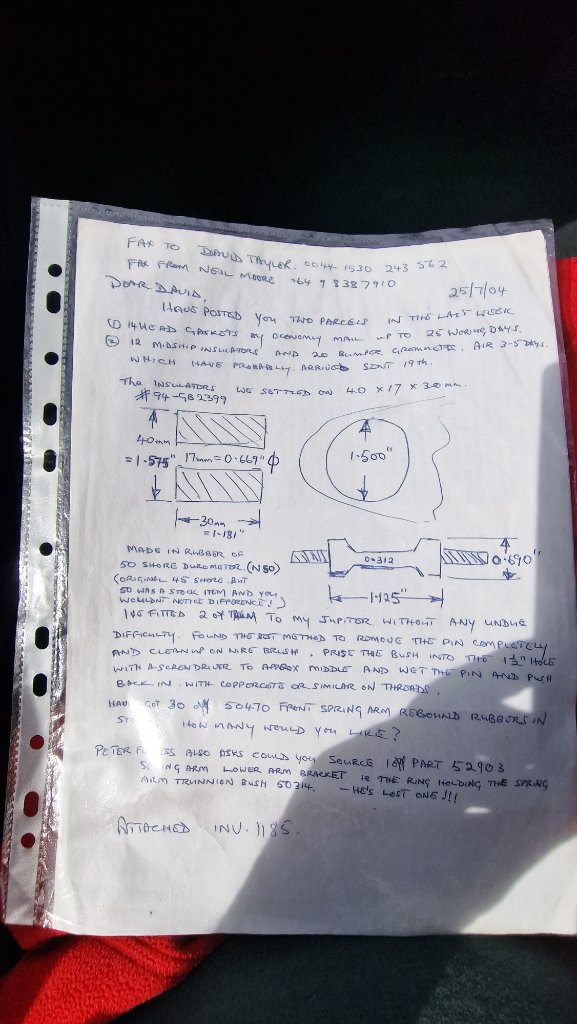 FAX TO DAVID TAYLOR. 0044 1530 243 562
FAX FROM NEIL MOORE 64 9 8387910
DEAR DAVID, 25/7/04
HAVE POSTED YOU TWO PARCELS IN THE LAST WEEK
① 14 HEAD GASKETS BY ECONOMY MAIL UP TO 25 WORING DAYS.
② 12 MIDSHIP INSULATORS AND 20 BUMPER GROMMETS. AIR 3-5 DAYS.
WHICH HAVE PROBABLY ARRIVED SENT 19TH.
THE INSULATORS WE SETTLED ON 40 X 17 X 30 MM.
#94-GB2399
40mm
= 1.575" 17mm = 0.669" ϕ
1.500"
30mm
= 1.181"
MADE IN RUBBER OF
50 SHORE DUROMETER. (N50)
(ORIGINAL 45 SHORE. BUT
50 WAS A STOCK ITEM AND YOU
WOULDNT NOTICE DIFFERENCE!)
0.312
0.690"
1.125"
IVE FITTED 2 OF THEM TO MY JUPITER WITHOUT ANY UNDUE
DIFFICULTY. FOUND THE BEST METHOD TO REMOVE THE PIN COMPLETELY
AND CLEAN UP ON WIRE BRUSH. PRISE THE BUSH INTO THE 1½" HOLE
WITH A SCREWDRIVER TO APPROX MIDDLE AND WET THE PIN AND PUSH
BACK IN. WITH COPPERCOTE OR SIMILAR ON THREADS.
HAVE GOT 30 off 50470 FRONT SPRING ARM REBOUND RUBBERS IN
HOW MANY WOULD YOU LIKE?
PETER ALSO ASKS COULD YOU SOURCE 1 off PART 52903
SPRING ARM LOWER ARM BRACKET ie THE RING HOLDING THE SPRING
ARM TRUNNION BUSH 50314. - HE'S LOST ONE!!!
ATTACHED INV. 1185.